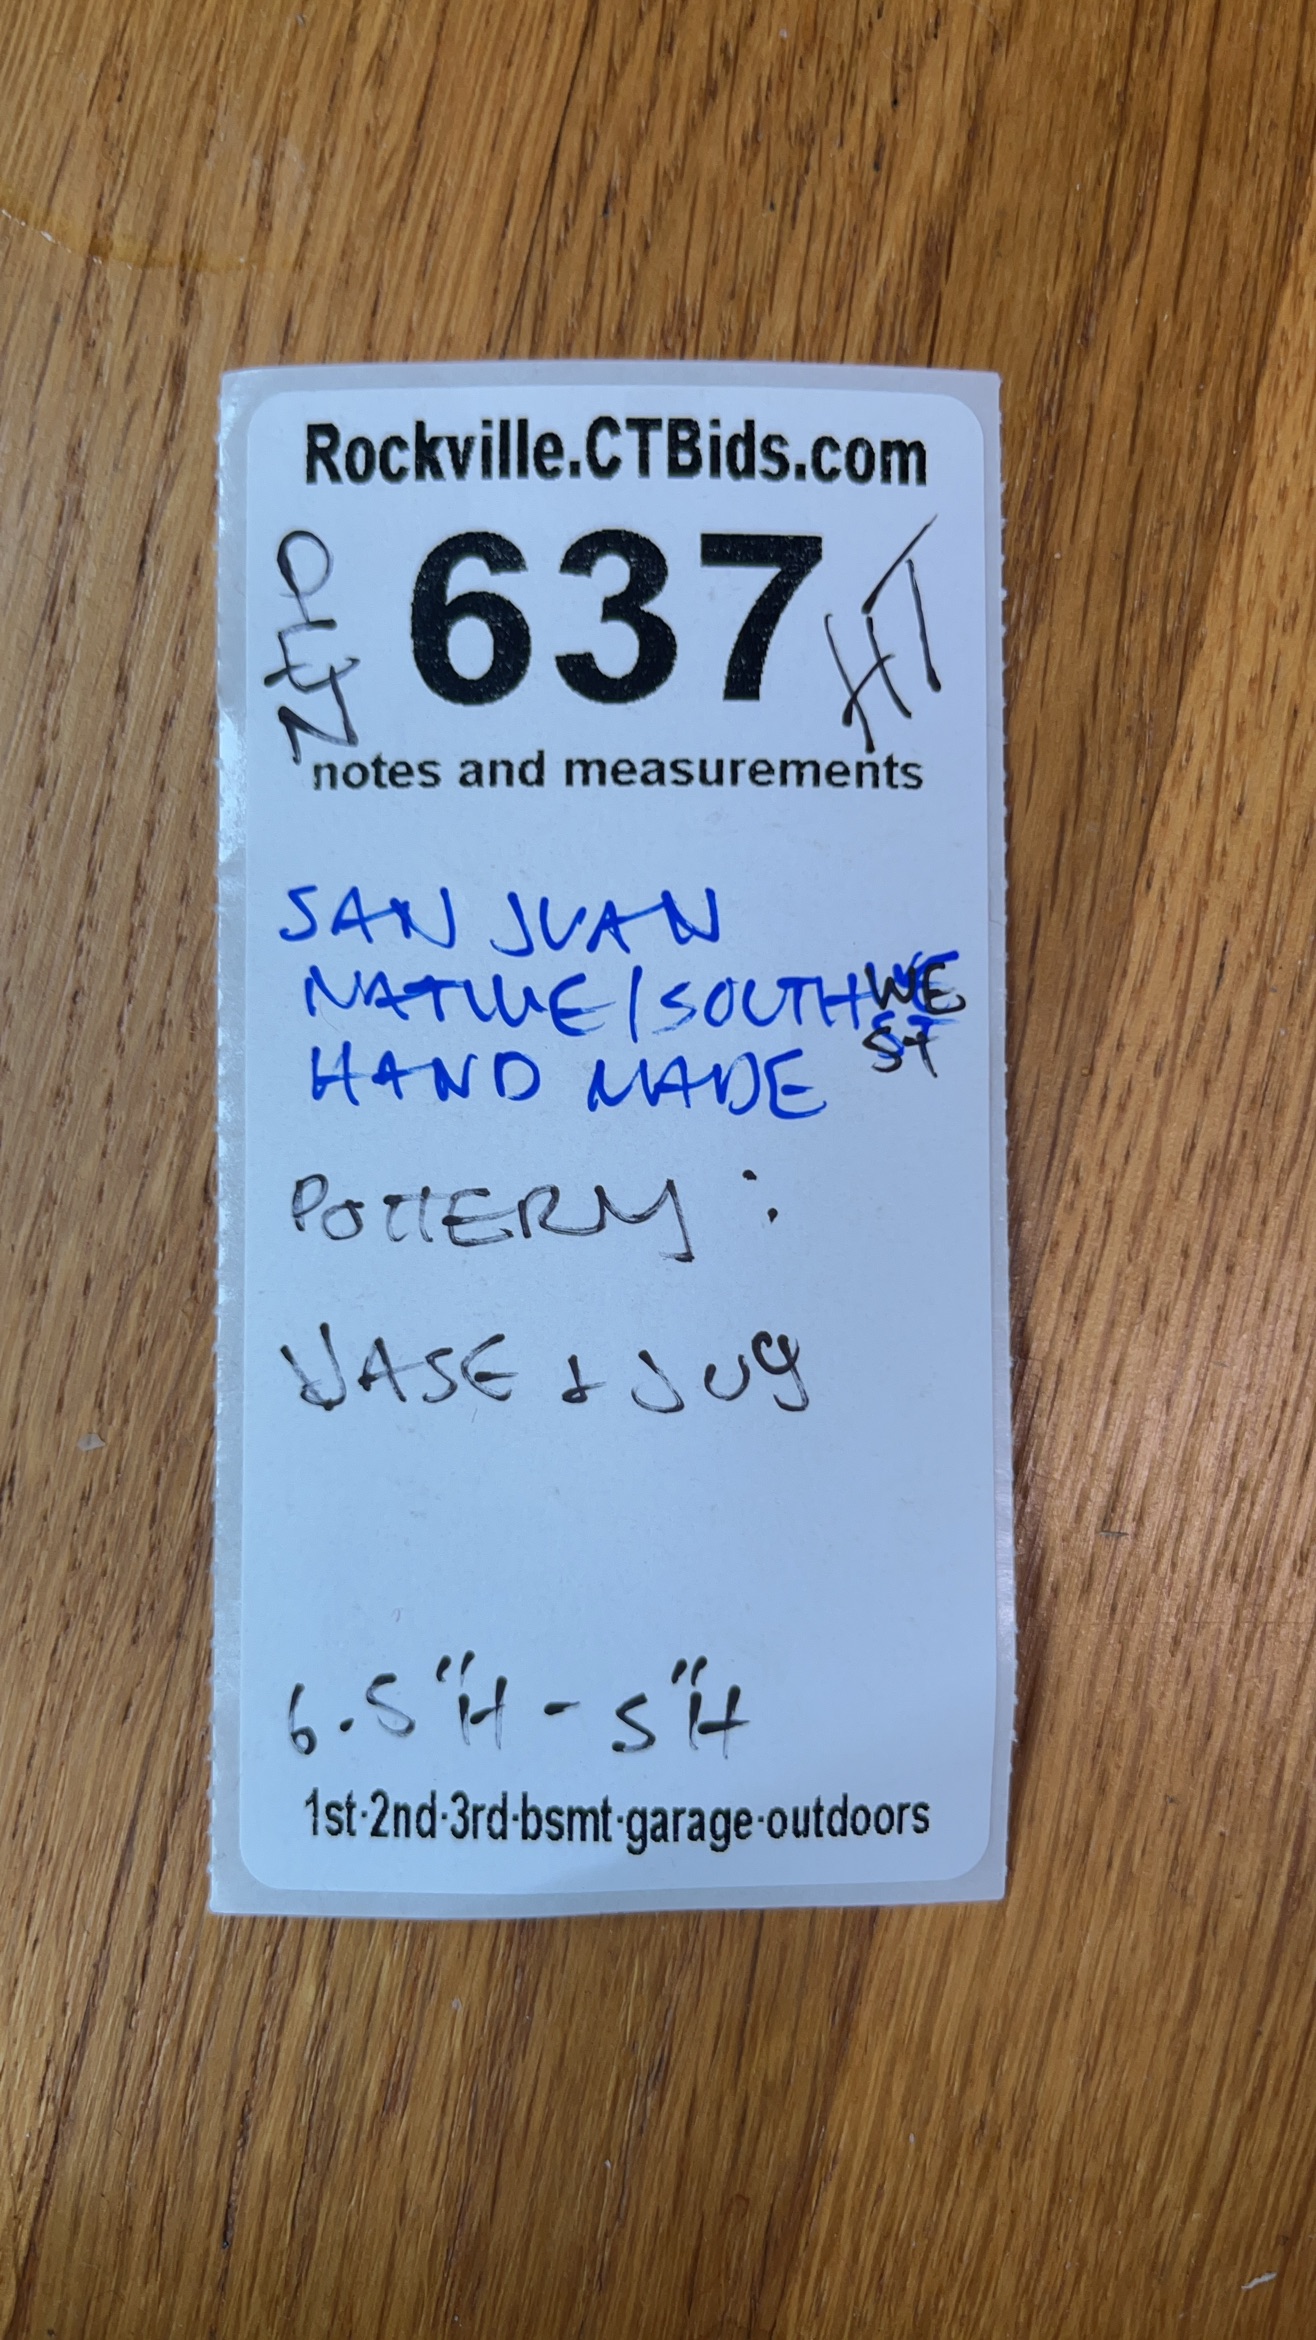 Rockville.CTBids.com
PEN
637
HT
notes and measurements
SAN JUAN
NATIVE/SOUTHWE
ST
HAND MADE
POTTERY:
VASE & JUG
6.5"H - 5"H
1st·2nd·3rd·bsmt·garage·outdoors